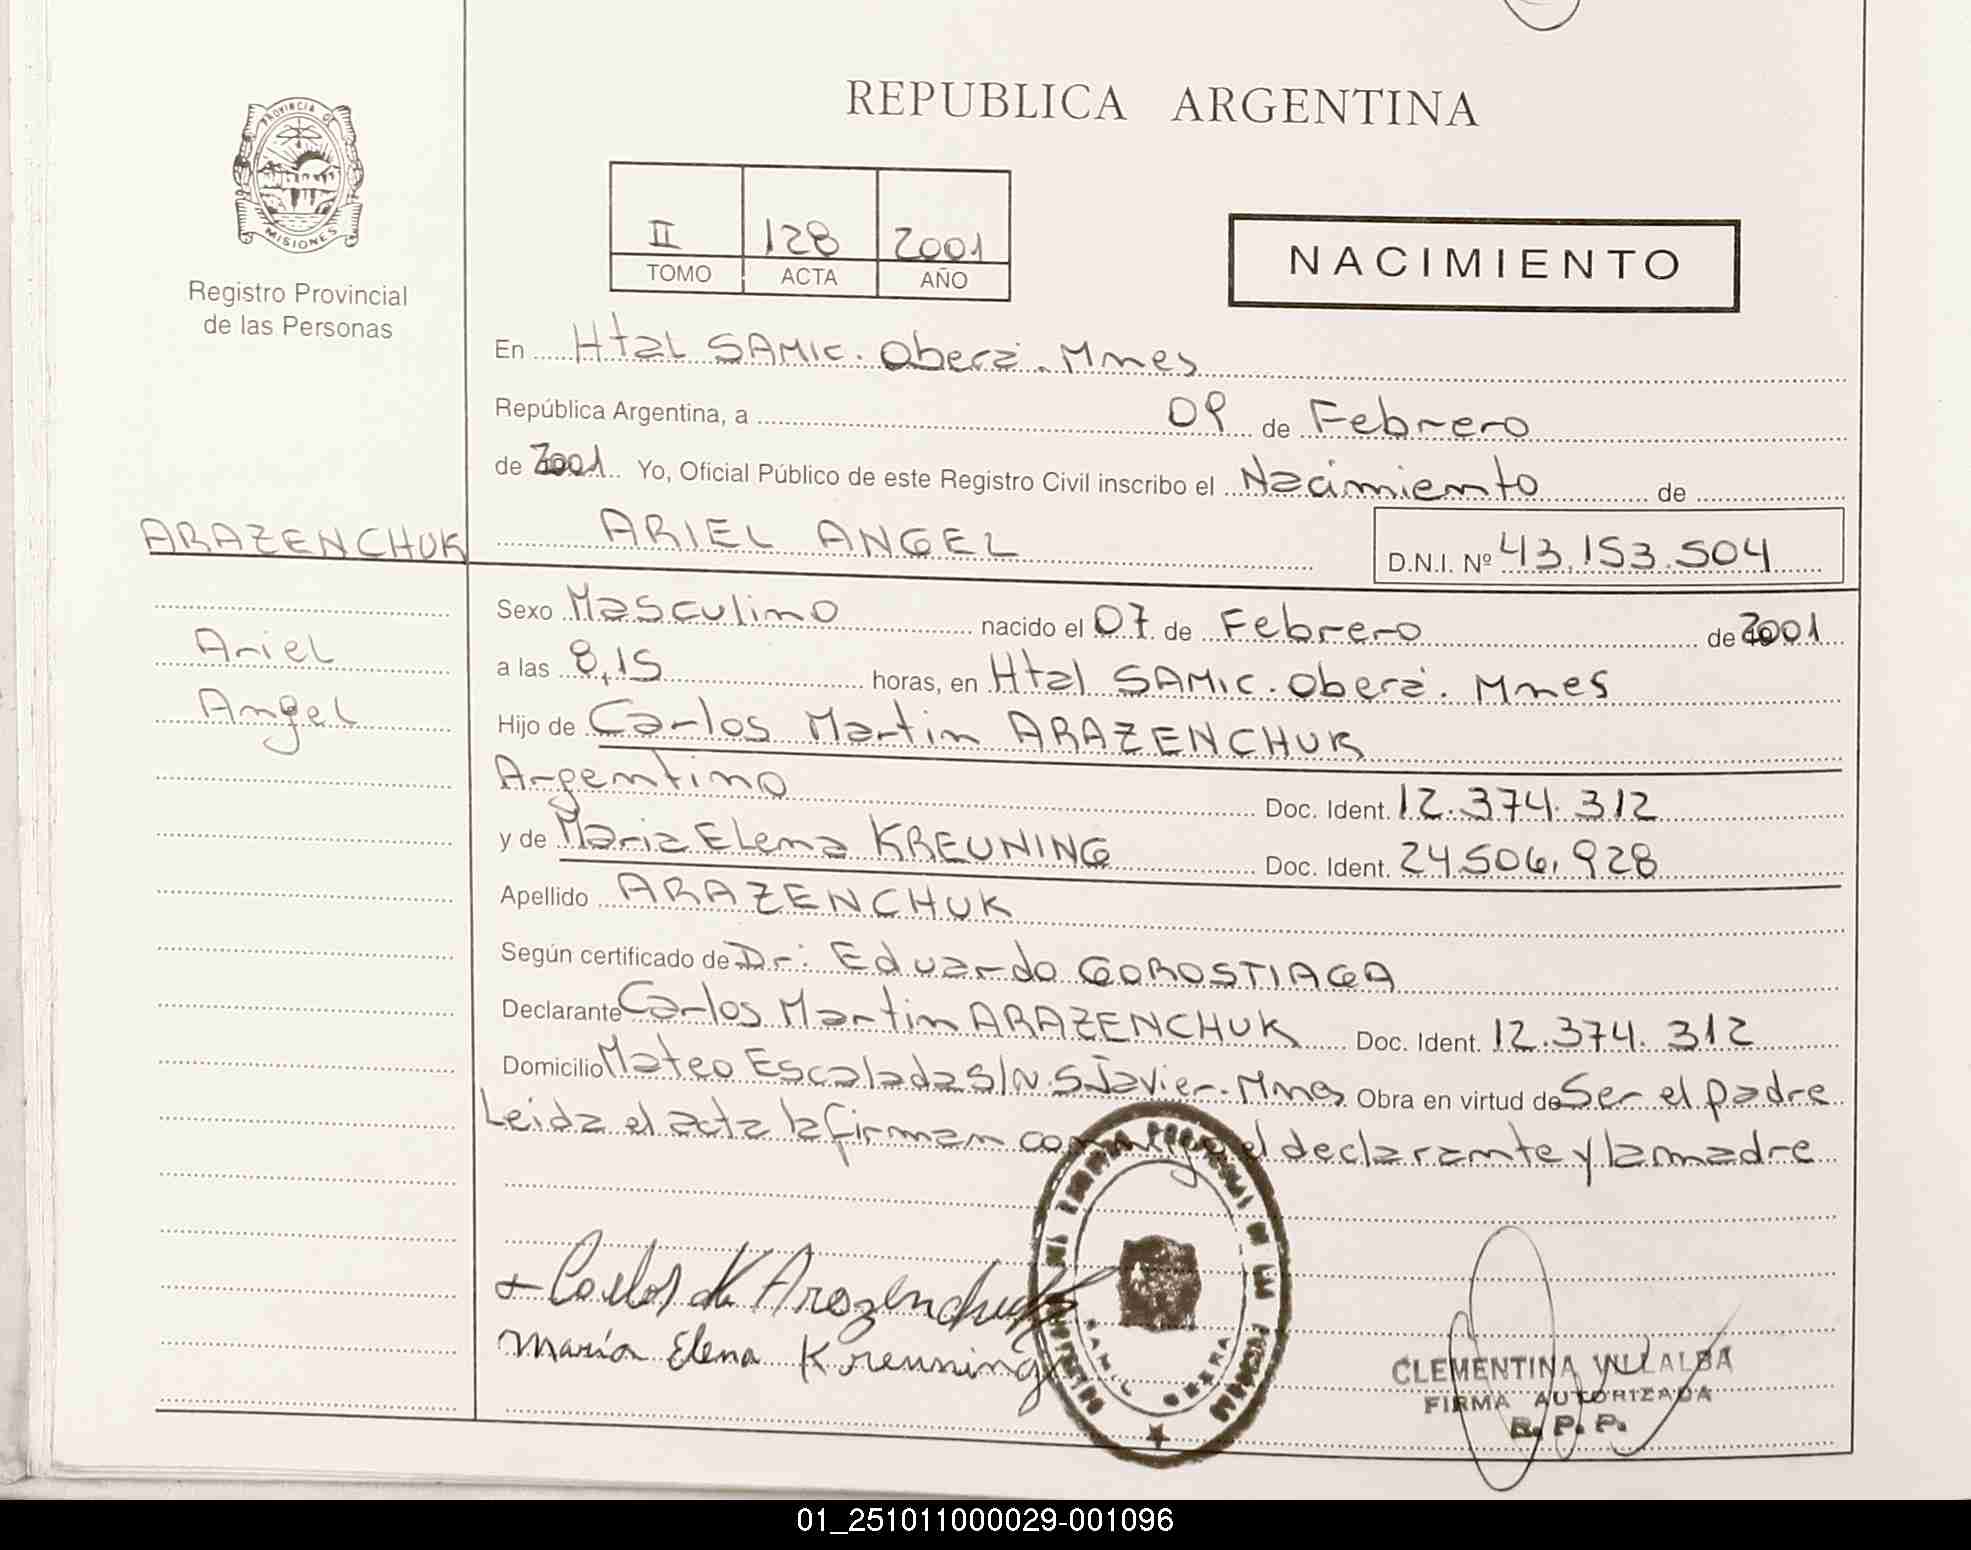 REPUBLICA ARGENTINA
PROVINCIA DE
MISIONES
Registro Provincial
de las Personas
II 128 2001
TOMO ACTA AÑO
NACIMIENTO
En Htal SAMIC. Oberá. Mnes
República Argentina, a 09 de Febrero
de 2001 Yo, Oficial Público de este Registro Civil inscribo el Nacimiento de
ARAZENCHUK ARIEL ANGEL D.N.I. Nº 43.153.504
Sexo Masculino nacido el 07 de Febrero de 2001
Ariel
a las 8,15 horas, en Htal SAMIC. Oberá. Mnes
Angel
Hijo de Carlos Martin ARAZENCHUK
Argentino Doc. Ident. 12.374.312
y de Maria Elena KREUNING Doc. Ident. 24.506.928
Apellido ARAZENCHUK
Según certificado de Dr: Eduardo GOROSTIAGA
Declarante Carlos Martin ARAZENCHUK Doc. Ident. 12.374.312
Domicilio Mateo Escalada S/N. S Javier. Mnes Obra en virtud de Ser el padre
Leida el acta la firman conmigo el declarante y la madre
Carlos M Arazenchuk
María Elena Kreuning
OBERA
CLEMENTINA VILLALBA
FIRMA AUTORIZADA
R. P. P.
01_251011000029-001096